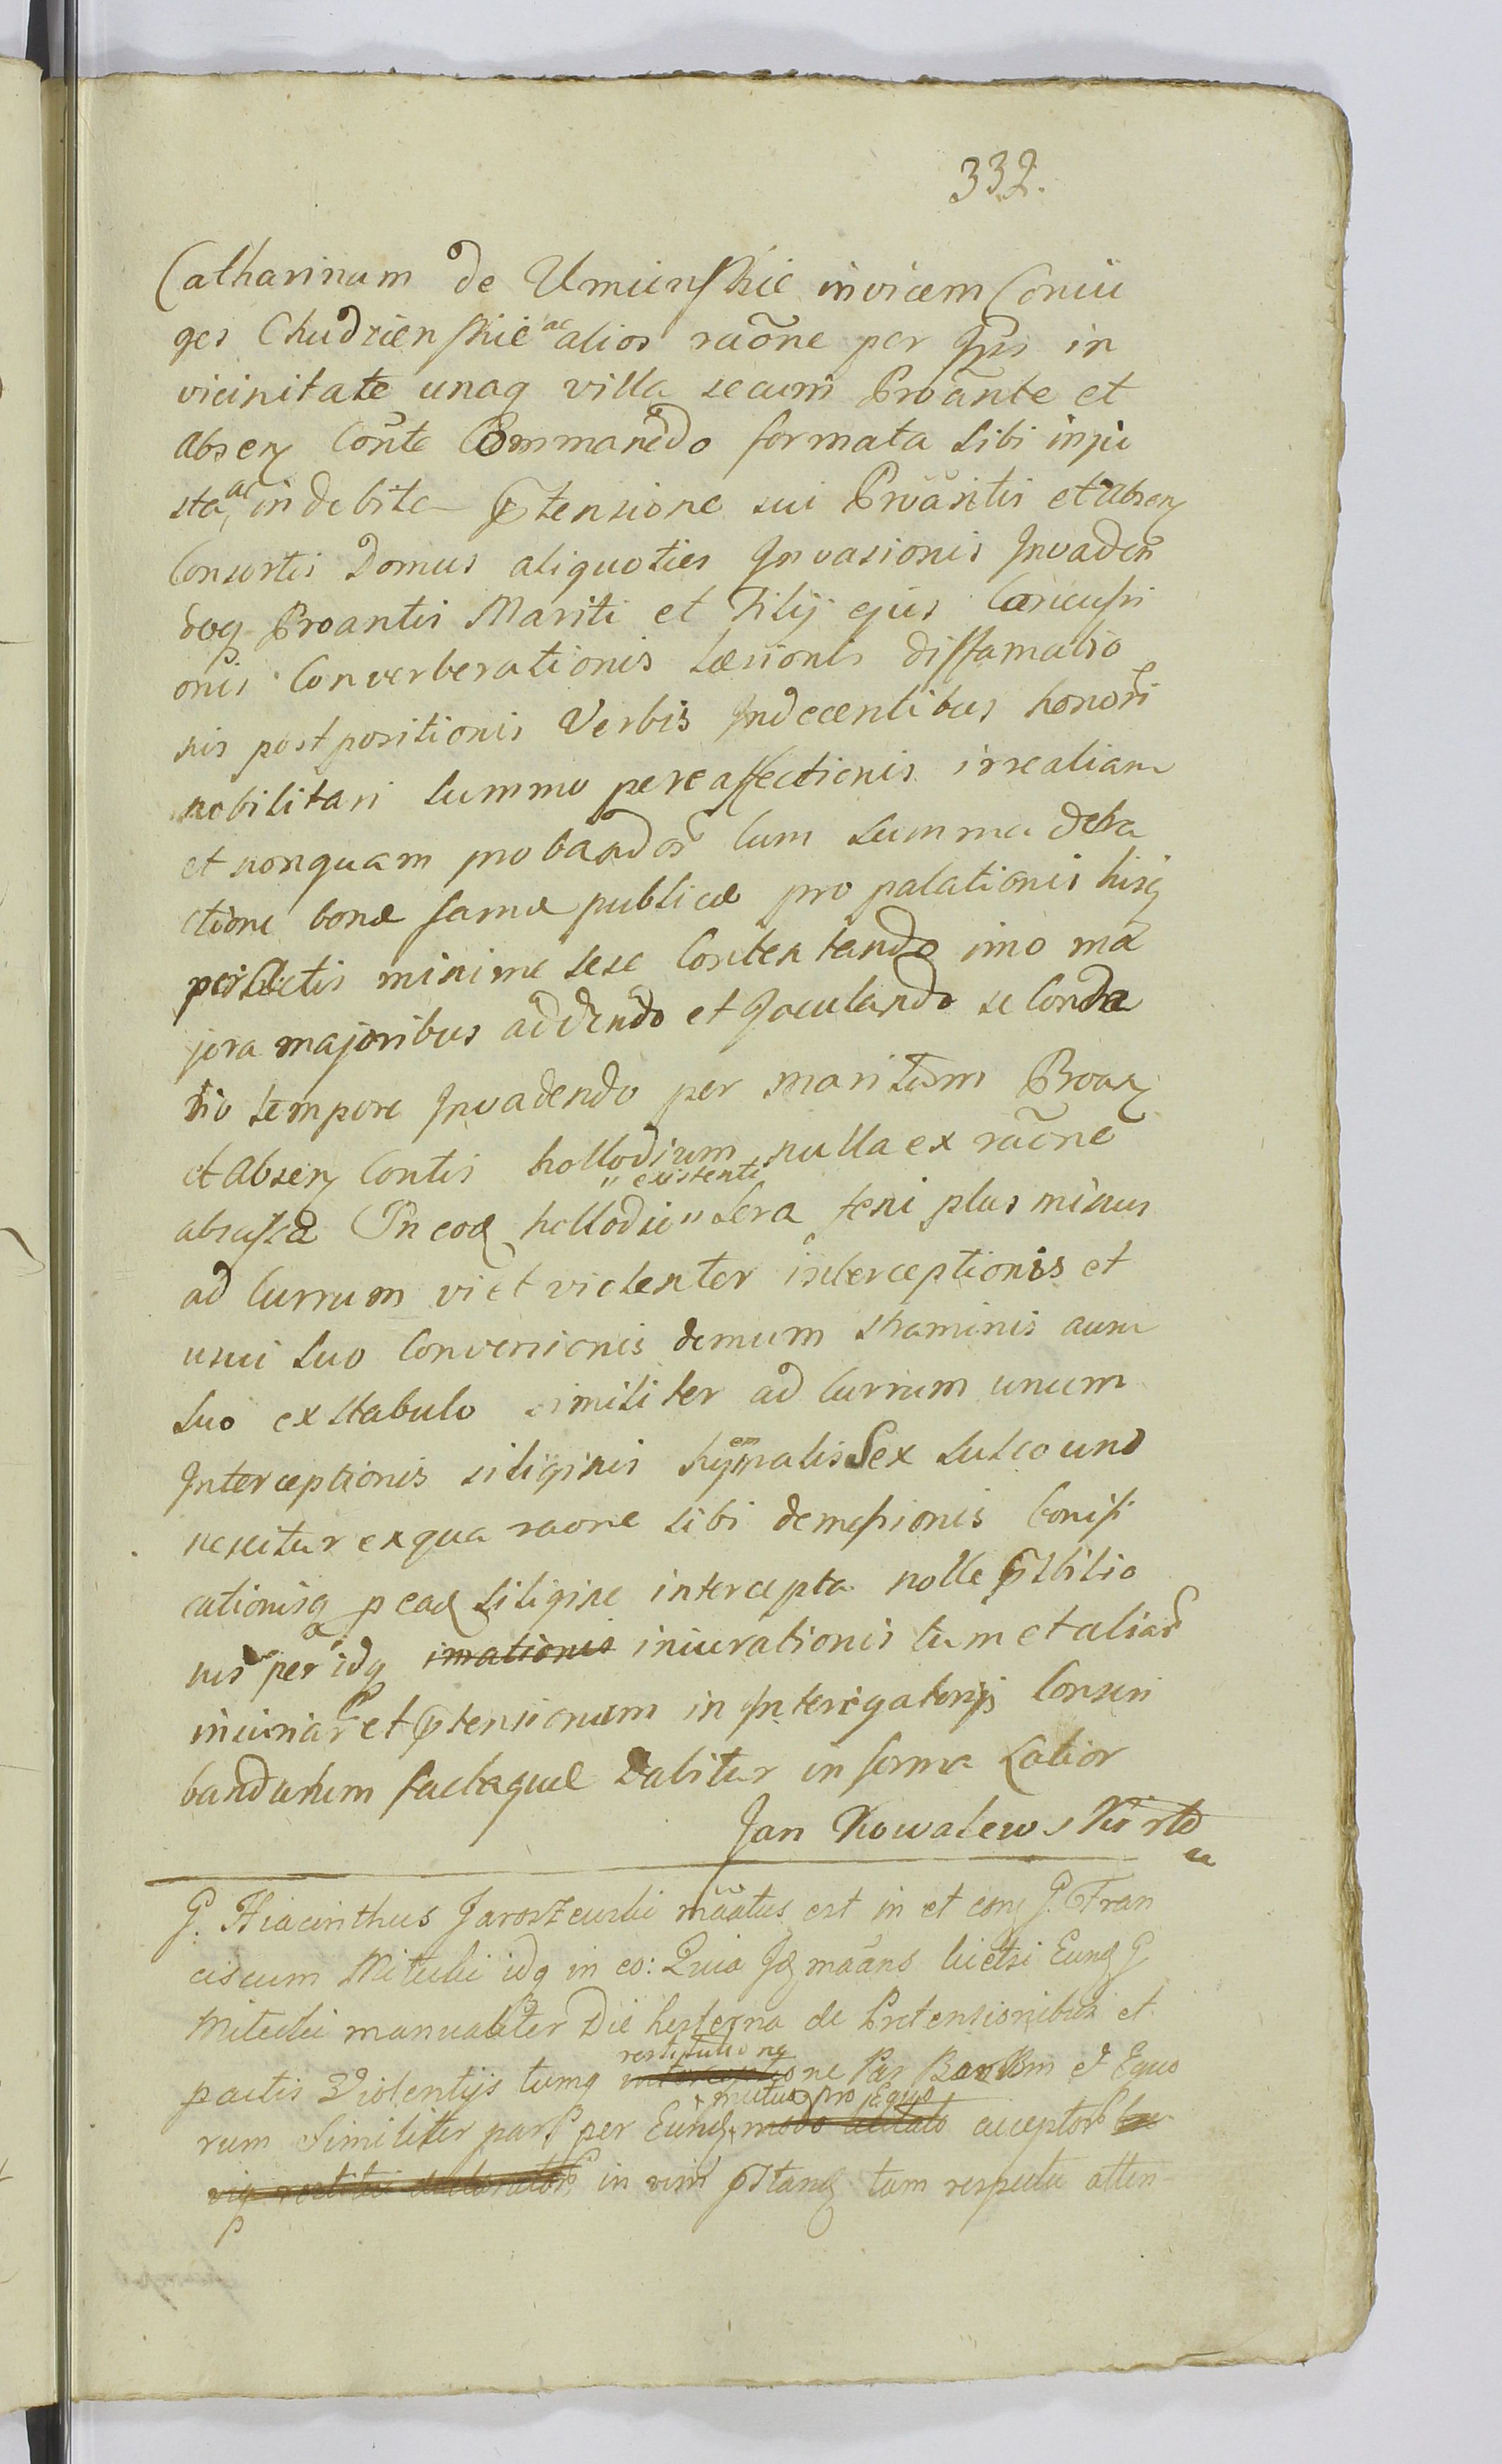 332.
Catharinam de Umienskie invicem Coniu
ges Chudzienskie ac alios raōne per Ips in
vicinitate unaq villa secum Proānte et
absen Conte Commanēdo formata sibi inju
sta ac indebite ptensione sui Proāntis et absen
Consortis Domus aliquoties Invasionis Invaden
doq Proantis Mariti et Filij ejus Concussi
onis Converberationis Læsionis diffamatio
nis postpositionis Verbis Indecentibus honori
nobilitari summo pere affectionis irrealiam
et nonquam probandor cum summa detra
ctione bonæ famæ publicæ pro palationis hisq
peractis minime sese Contentando imo ma
jora majoribus addendo et Joculando se Conda
rio tempore Invadendo per maritum Proan
et absen Contis hollodium nulla ex raōne
abrussa In eoq hollodiu existenti sera feni plus minus
ad Currum vi et violenter interceptionis et
usui suo Conversionis demum straminis ausu
suo ex stabulo similiter ad Currum unum
Interceptionis siliginis hyemalis ex sulco uno
nescitur ex qua raone sibi demessionis Conisi
cationisq p eaq siligine intercepta nolle pstitio
nis per idq imationis iniurationis tum et aliar
iniuriar et ptensionum in Interigatorijs Conscri
bandurum factaque dabitur in forma Latior
Jan Kowalewski
G. Hiacinthus Jaroszewski māātus est in et con G. Fran
ciscum Miteslii idq in eo: Quia Iq maans licetsi Eunq G
Miteslii manualiter Die hesterna de Pretensionibus et
pactis Violentijs tumq restitutione ne Par Boukm et Equo
rum Similiter par per Eunq mutuo pro Equo modo acceptor
in vim pstanq tam respectu atten-